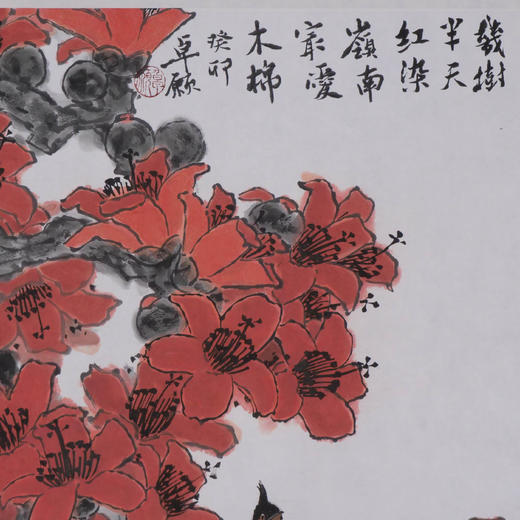 幾樹
半天
紅染
嶺南
家愛
木棉
癸卯
卓願